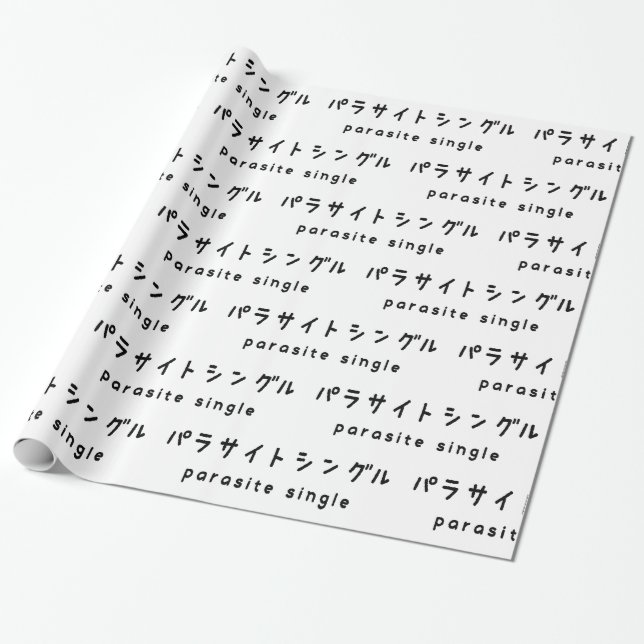 トシングル パラサイトシングル パラサイ
ite single parasite single parasit
パラサイトシングル パラサイトシングル
parasite single parasite single
トシングル パラサイトシングル パラサイ
single parasite single parasit
パラサイトシングル パラサイトシングル
parasite single parasite single
トシングル パラサイトシングル パラサイ
single parasite single parasit
パラサイトシングル パラサイトシングル
parasite single parasite single
トシングル パラサイトシングル パラサイ
ite single parasite single parasit